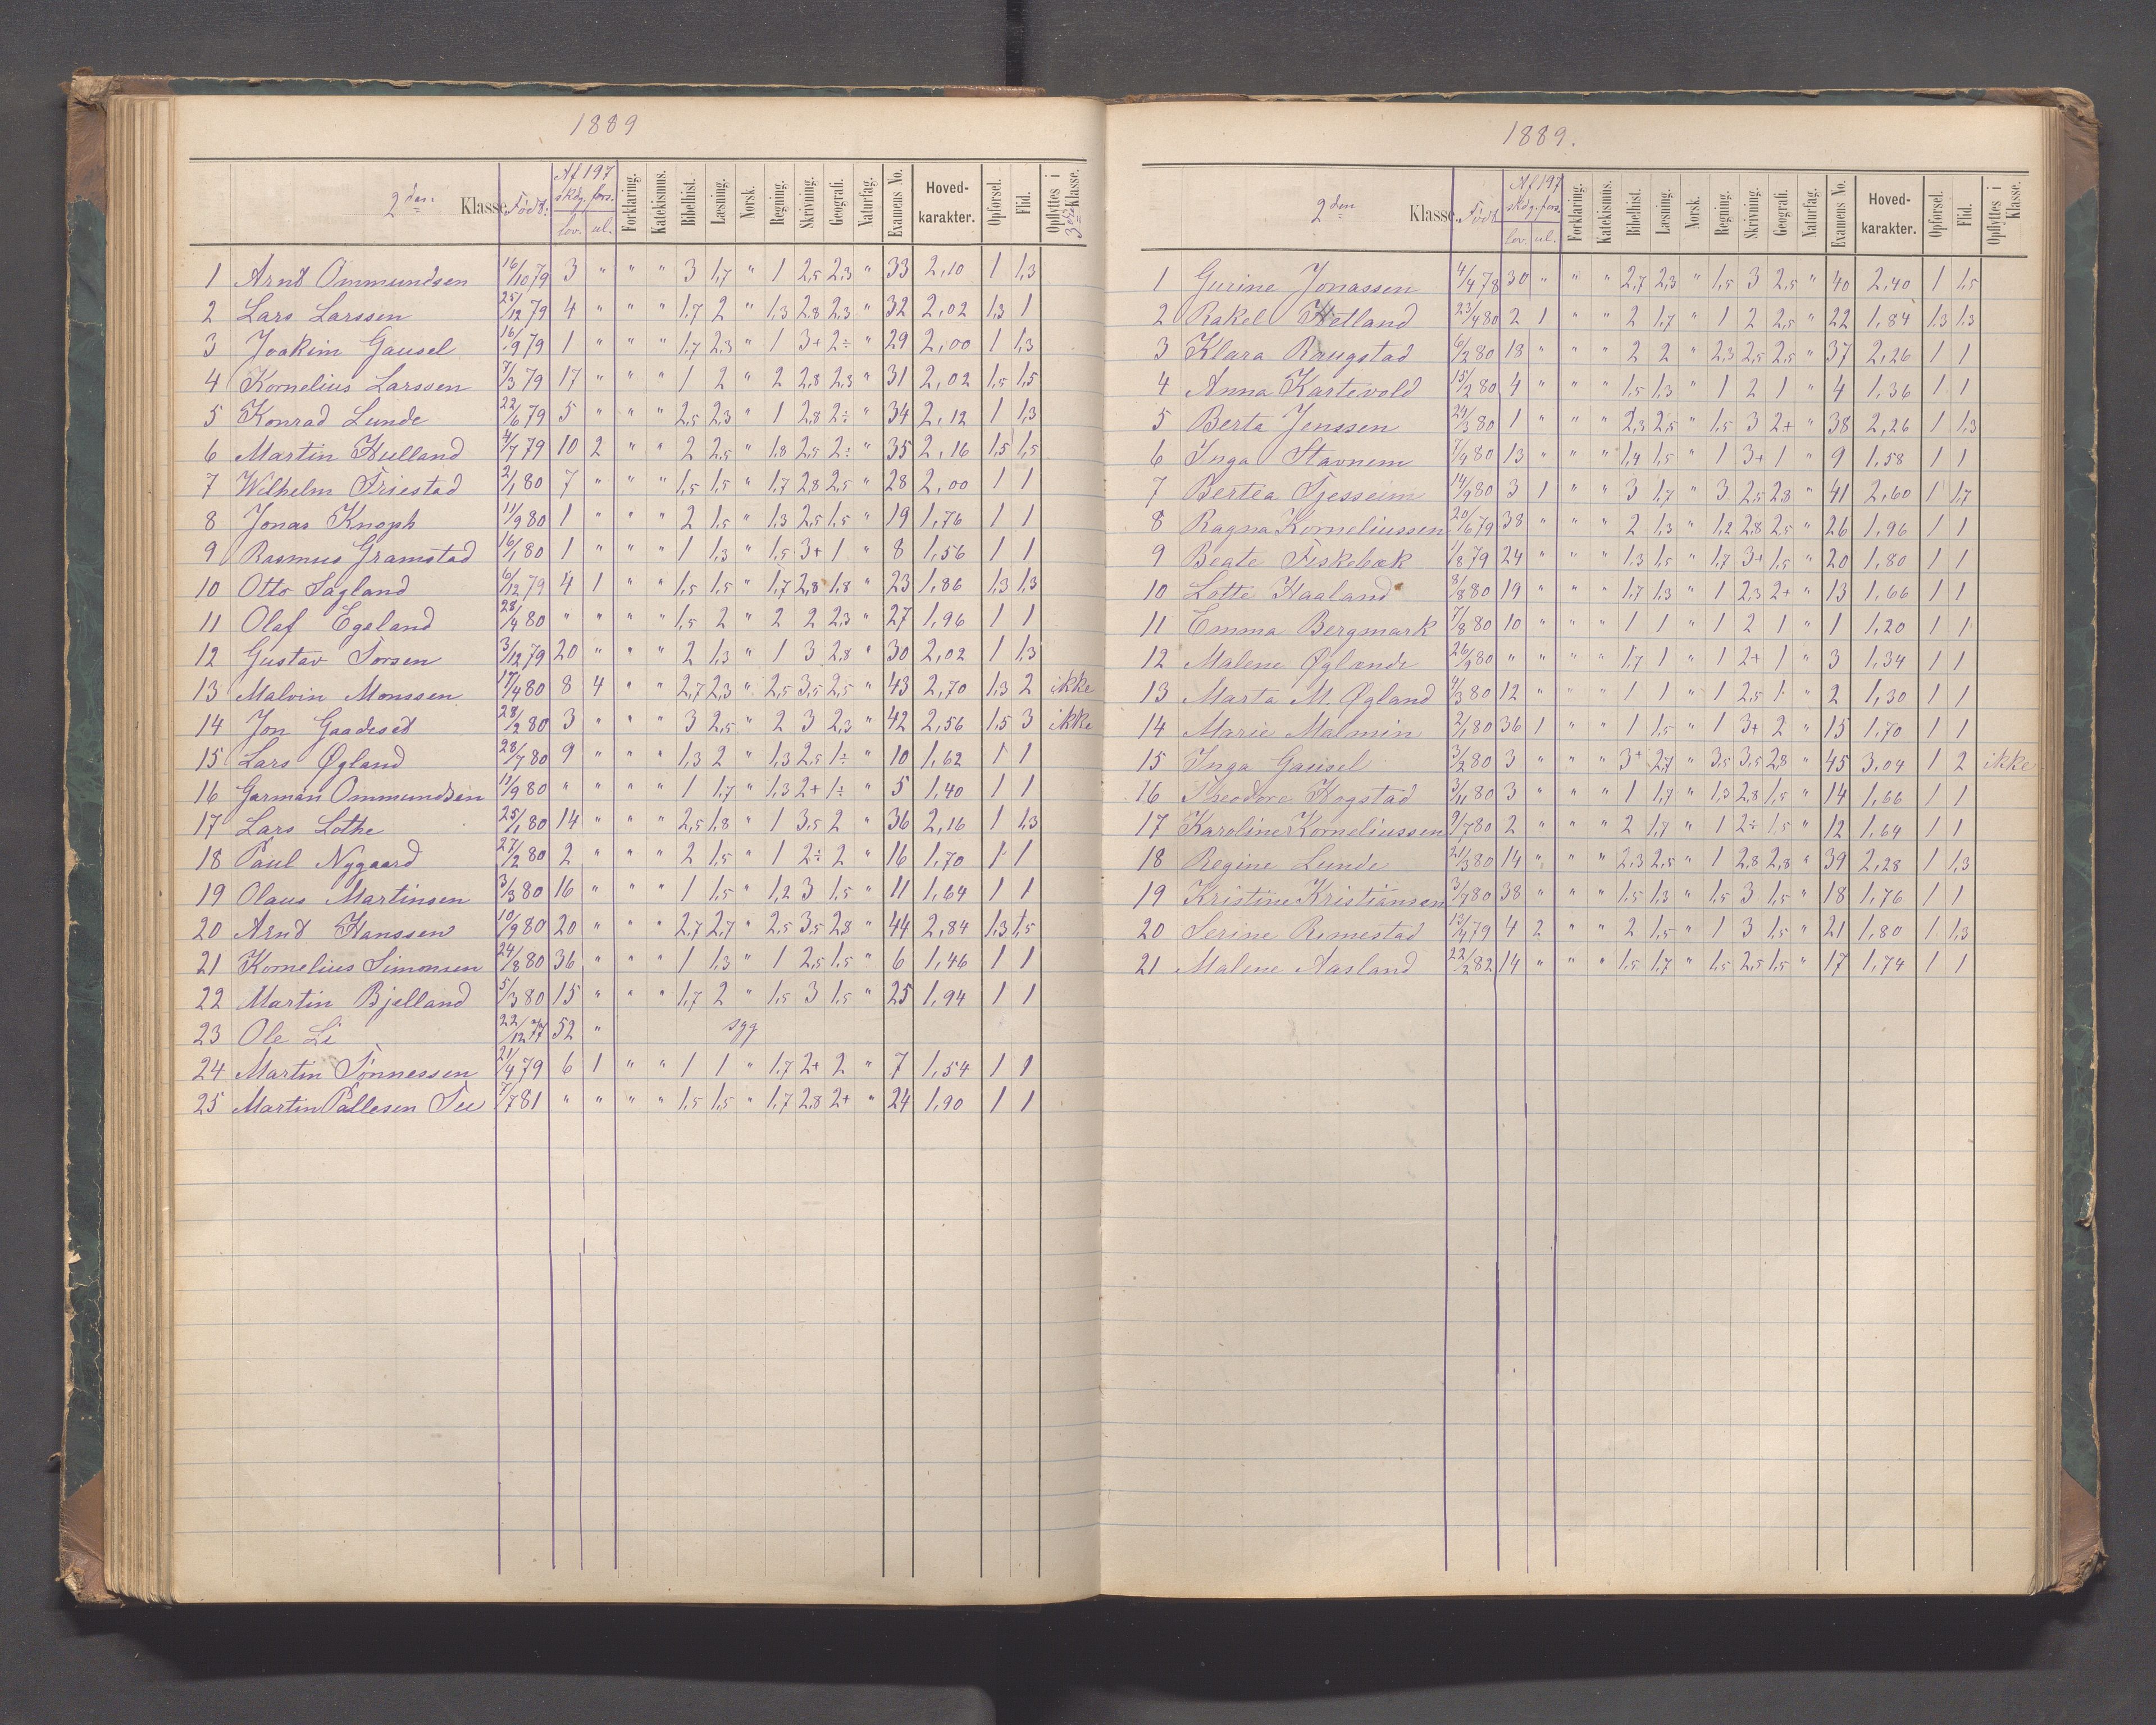 1889
2den Klasse. Født. Af 197 skdg. fors. lov. ul. Forklaring. Katekismus. Bibelhist. Læsning. Norsk. Regning. Skrivning. Geografi. Naturfag. Examens No. Hoved-karakter. Opførsel. Flid. Opflyttes i 3die Klasse.
1 Arnt Ommundsen 16/10 79 3 " " " 3 1,7 " 1 2,5 2,3 " 33 2,10 1 1,3
2 Lars Larssen 25/12 79 4 " " " 1,7 2 " 1,3 2,8 2,3 " 32 2,02 1,3 1
3 Joakim Gausel 16/9 79 1 " " " 1,7 2,3 " 1 3+ 2÷ " 29 2,00 1 1,3
4 Kornelius Larssen 7/3 79 17 " " " 1 2 " 2 2,8 2,3 " 31 2,02 1,5 1,5
5 Konrad Lunde 22/6 79 5 " " " 2,5 2,3 " 1 2,8 2÷ " 34 2,12 1 1,3
6 Martin Hulland 4/7 79 10 2 " " 2 2,5 " 1,8 2,5 2÷ " 35 2,16 1,5 1,5
7 Wilhelm Friestad 2/1 80 7 " " " 1,5 1,5 " 1,7 2,8 2,5 " 28 2,00 1 1
8 Jonas Knoph 11/9 80 1 " " " 2 1,5 " 1,3 2,5 1,5 " 19 1,76 1 1
9 Rasmus Gramstad 16/1 80 1 " " " 1 1,3 " 1,5 3+ 1 " 8 1,56 1 1
10 Otto Sagland 6/12 79 4 1 " " 1,5 1,5 " 1,7 2,8 1,8 " 23 1,86 1,3 1,3
11 Olaf Egeland 28/4 80 " " " " 1,5 2 " 2 2 2,3 " 27 1,96 1 1
12 Gustav Torsen 3/12 79 20 " " " 2 1,3 " 1 3 2,8 " 30 2,02 1 1,3
13 Malvin Monssen 17/4 80 8 4 " " 2,7 2,3 " 2,5 3,5 2,5 " 43 2,70 1,3 2 ikke
14 Jon 28/2 80 3 " " " 3 2,5 " 2 3 2,3 " 42 2,56 1,5 3 ikke
15 Lars Øgland 28/7 80 9 " " " 1,3 2 " 1,3 2,5 1÷ " 10 1,62 1 1
16 Garman Ommundsen 11/9 80 " " " " 1 1,7 " 1,3 2+ 1÷ " 5 1,40 1 1
17 Lars Lothe 25/1 80 14 " " " 2,5 1,8 " 1 3,5 2 " 36 2,16 1 1,3
18 Paul Nygaard 27/2 80 2 " " " 2 1,5 " 1 2÷ 2 " 16 1,70 1 1
19 Olaus Martinsen 3/3 80 16 " " " 1 1,5 " 1,2 3 1,5 " 11 1,64 1 1
20 Arnt Hanssen 10/9 80 20 " " " 2,7 2,7 " 2,5 3,5 2,8 " 44 2,84 1,3 1,5
21 Kornelius Simonsen 24/8 80 36 " " " 1 1,3 " 1 2,5 1,5 " 6 1,46 1 1
22 Martin Bjelland 5/3 80 15 " " " 1,7 2 " 1,5 3 1,5 " 25 1,94 1 1
23 Ole Li 22/12 77 52 " syg
24 Martin Tønnessen 21/4 79 6 1 " " 1 1 " 1,7 2+ 2 " 7 1,54 1 1
25 Martin Pallesen 7/7 81 " " " " 1,5 1,5 " 1,7 2,8 2+ " 24 1,90 1 1
1889.
2den Klasse. Født Af 197 skdg. fors. lov. ul. Forklaring. Katekismus. Bibelhist. Læsning. Norsk. Regning. Skrivning. Geografi. Naturfag. Examens No. Hoved-karakter. Opførsel. Flid. Opflyttes i Klasse.
1 Gurine Jonassen 4/4 78 30 " " " 2,7 2,3 " 1,5 3 2,5 " 40 2,40 1 1,5
2 Rakel Hetland 23/4 80 2 1 " " 2 1,7 " 1 2 2,5 " 22 1,84 1,3 1,3
3 Klara Raugstad 6/2 80 18 " " " 2 2 " 2,3 2,5 2,5 " 37 2,26 1 1
4 Anna Kartevold 15/2 80 4 " " " 1,5 1,3 " 1 2 1 " 4 1,36 1 1
5 Berta Jenssen 24/3 80 1 " " " 2,3 2,5 " 1,5 3 2+ " 38 2,26 1 1,3
6 Inga Stavnem 7/4 80 13 " " " 1,4 1,5 " 1 3+ 1 " 9 1,58 1 1
7 Bertea Tjesseim 14/9 80 3 1 " " 3 1,7 " 3 2,5 2,8 " 41 2,60 1 1,7
8 Ragna Korneliussen 20/6 79 38 " " " 2 1,3 " 1,2 2,8 2,5 " 26 1,96 1 1
9 Beate Fiskebæk 1/8 79 24 " " " 1,3 1,5 " 1,7 3+ 1,5 " 20 1,80 1 1
10 Lotte Haaland 8/8 80 19 " " " 1,7 1,3 " 1 2,3 2+ " 13 1,66 1 1
11 Emma Bergmark 7/8 80 10 " " " 1 1 " 1 2 1 " 1 1,20 1 1
12 Malene Øglænde 26/9 80 " " " " 1,7 1 " 1 2+ 1 " 3 1,34 1 1
13 Marta M. Øgland 4/3 80 12 " " " 1 1 " 1 2,5 1 " 2 1,30 1 1
14 Marie Malmin 2/1 80 36 1 " " 1 1,5 " 1 3+ 2 " 15 1,70 1 1
15 Inga Gausel 3/2 80 3 " " " 3+ 2,7 " 3,5 3,5 2,8 " 45 3,04 1 2 ikke
16 Theodore Kogstad 3/11 80 3 " " " 1 1,7 " 1,3 2,8 1,5 " 14 1,66 1 1
17 Karoline Korneliussen 9/7 80 2 " " " 2 1,7 " 1 2÷ 1,5 " 12 1,64 1 1
18 Regine Lunde 21/3 80 14 " " " 2,3 2,5 " 1 2,8 2,8 " 39 2,28 1 1,3
19 Kristine Kristiansen 3/7 80 38 " " " 1,5 1,3 " 1,5 3 1,5 " 18 1,76 1 1
20 Serine Rimestad 13/4 79 4 2 " " 2 1,5 " 1 3 1,5 " 21 1,80 1 1,3
21 Malene Aasland 22/2 82 14 " " " 1,5 1,7 " 1,5 2,5 1,5 " 17 1,74 1 1